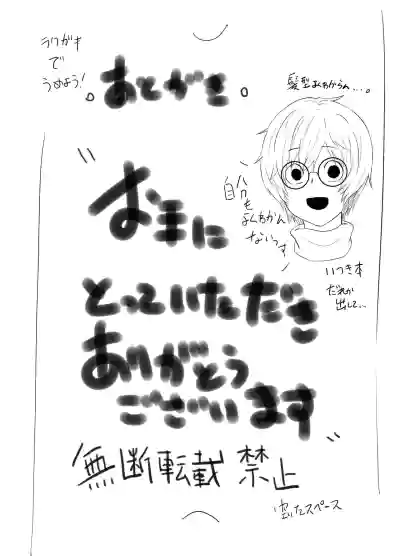 ラクガキ
で
うめよう!
。あとがき。
髪型よくわからん…。
自分もよくわかんないっす
"お手に
とっていただき
ありがとう
ございます"
いつき本
だれか
出して…
無断転載 禁止
空いたスペース